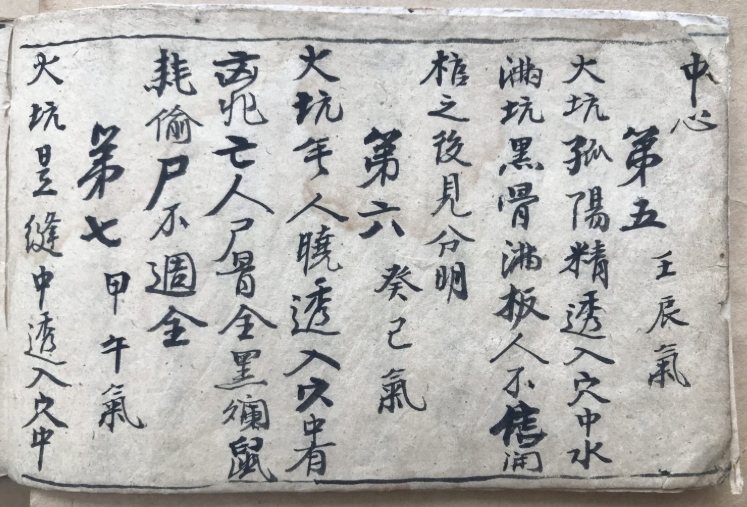 中心
第五 壬辰氣
大坑孤陽精透入穴中水
满坑黑骨满板人不信開
棺之後見分明
第六 癸巳氣
火坑人曉透入穴中有
凶兆亡人尸骨全黑爛鼠
耗偷尸不週全
第七 甲午氣
火坑是縫中透入穴中